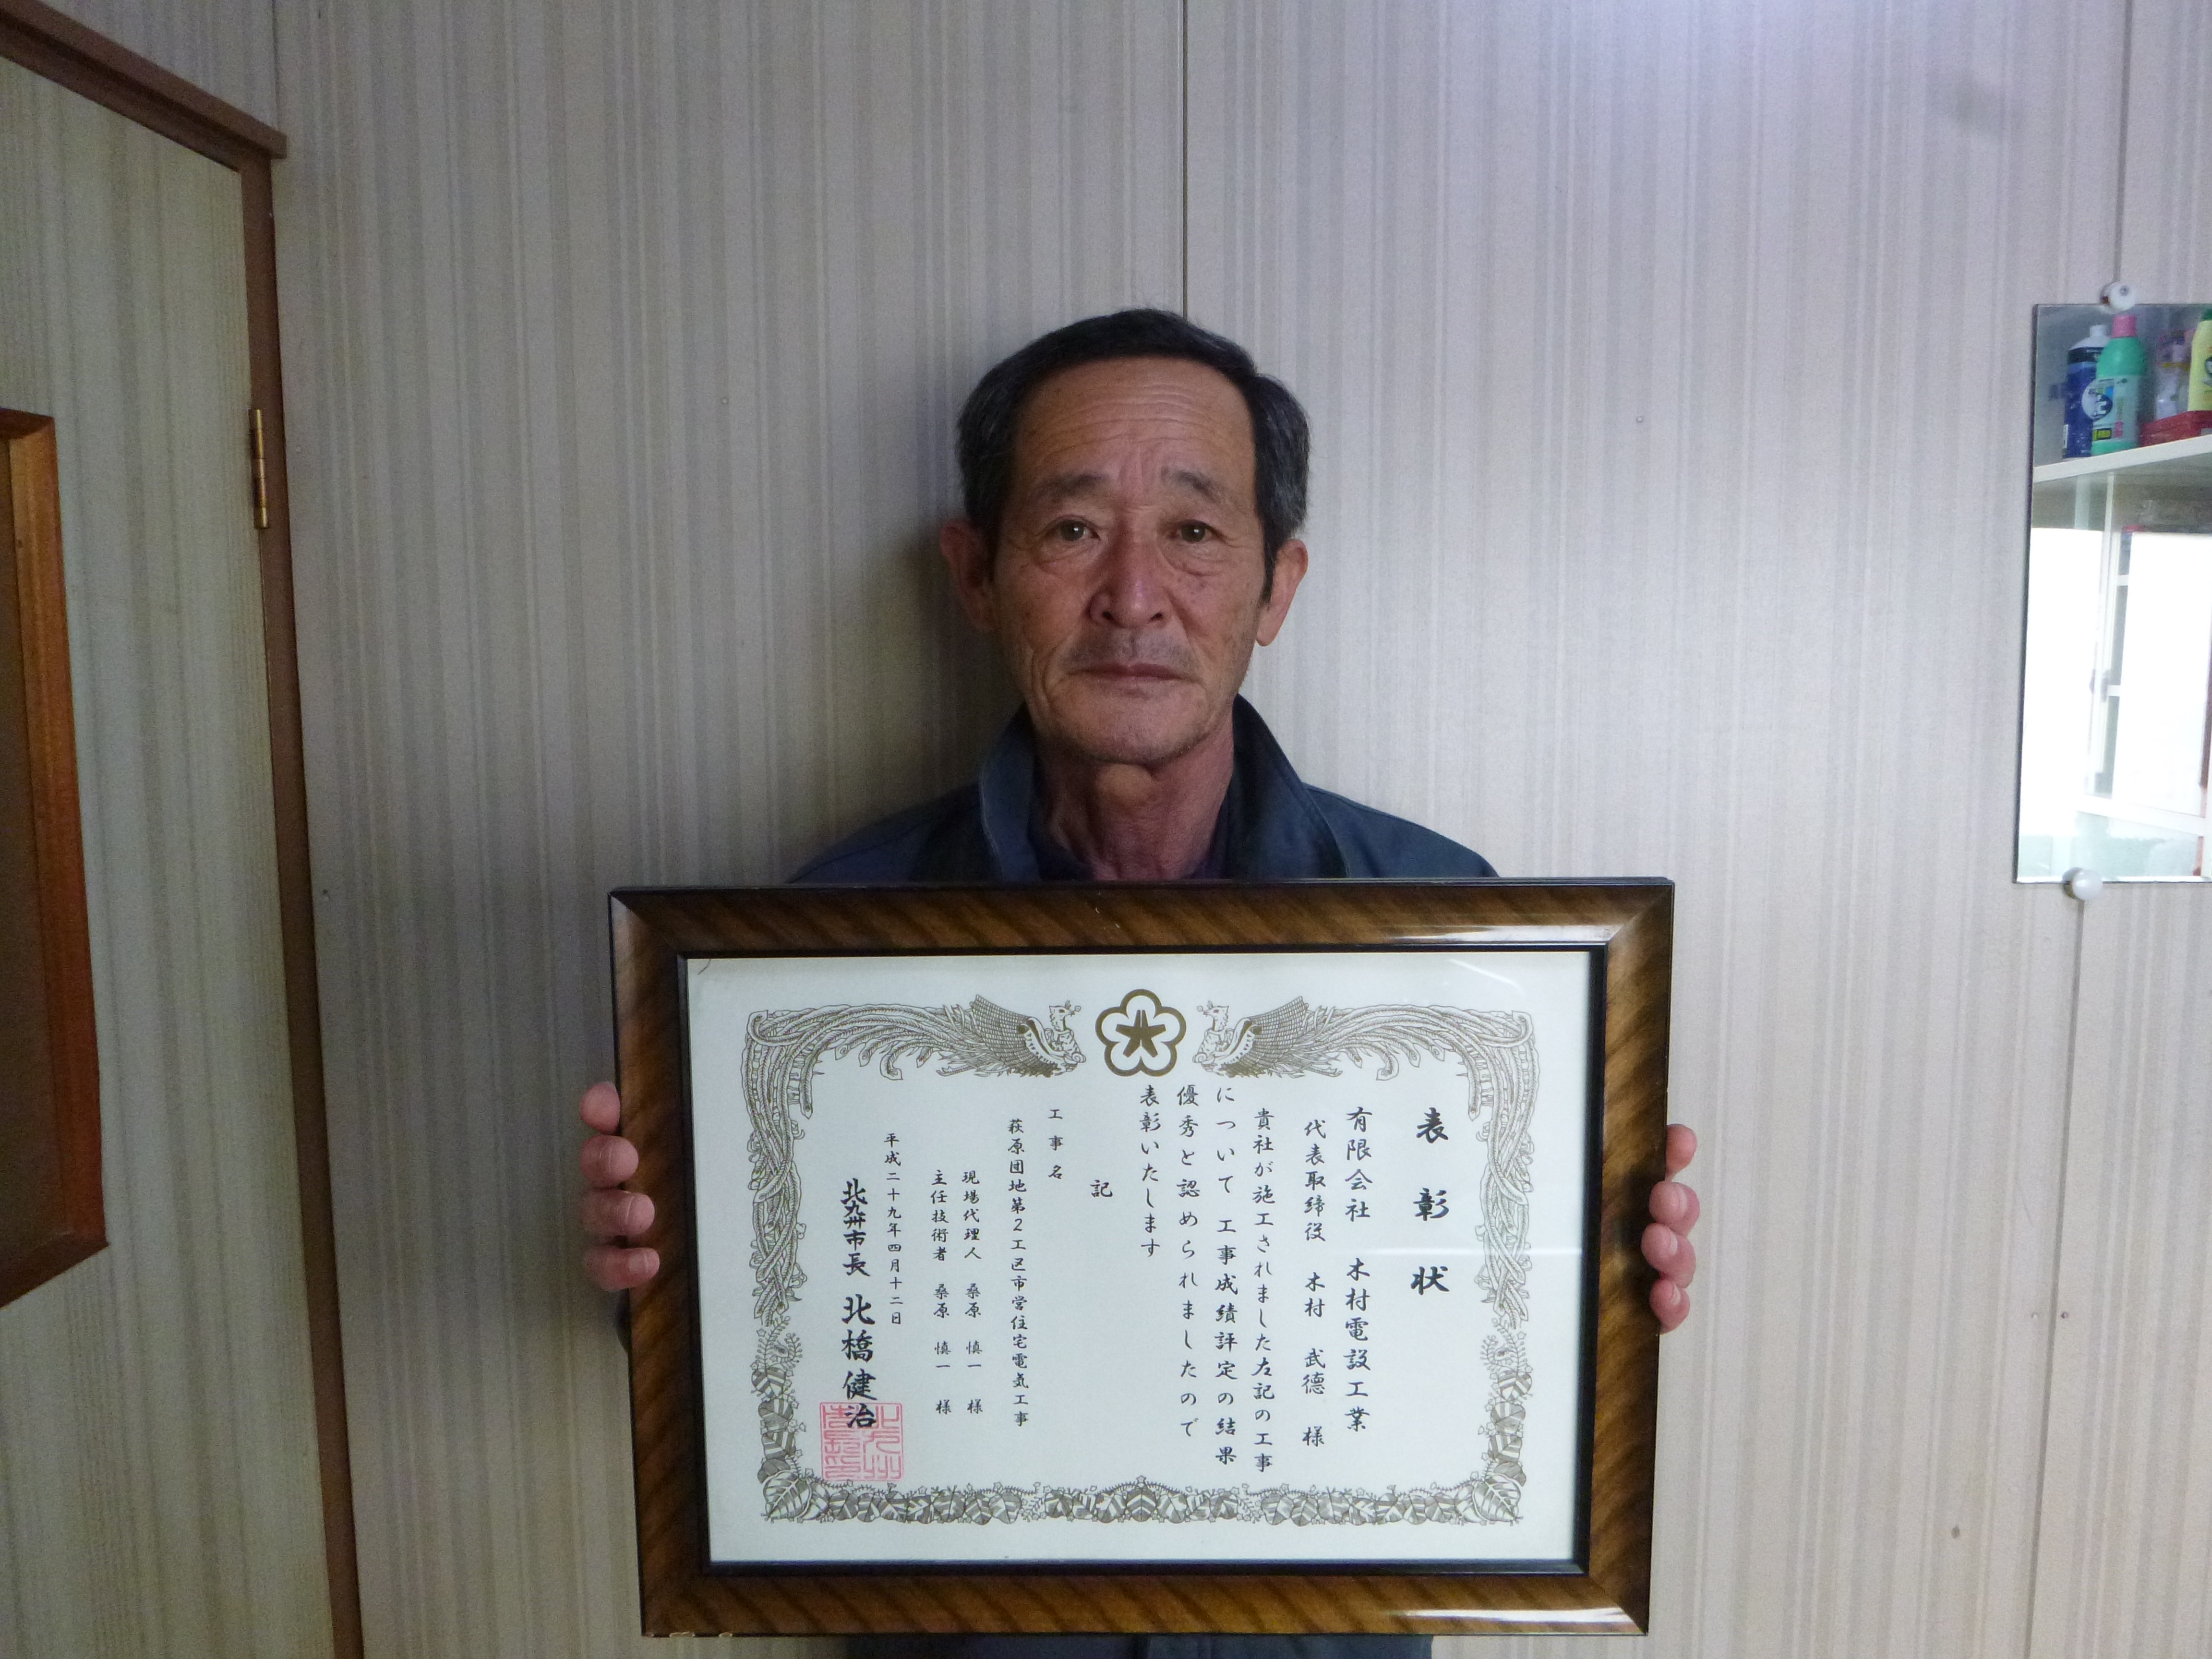 表彰状
有限会社 木村電設工業
代表取締役 木村 武德 様
貴社が施工されました左記の工事
について 工事成績評定の結果
優秀と認められましたので
表彰いたします
記
工事名
萩原団地第2工区市営住宅電気工事
現場代理人 桑原 慎一 様
主任技術者 桑原 慎一 様
平成二十九年四月十二日
北九州市長 北橋健治